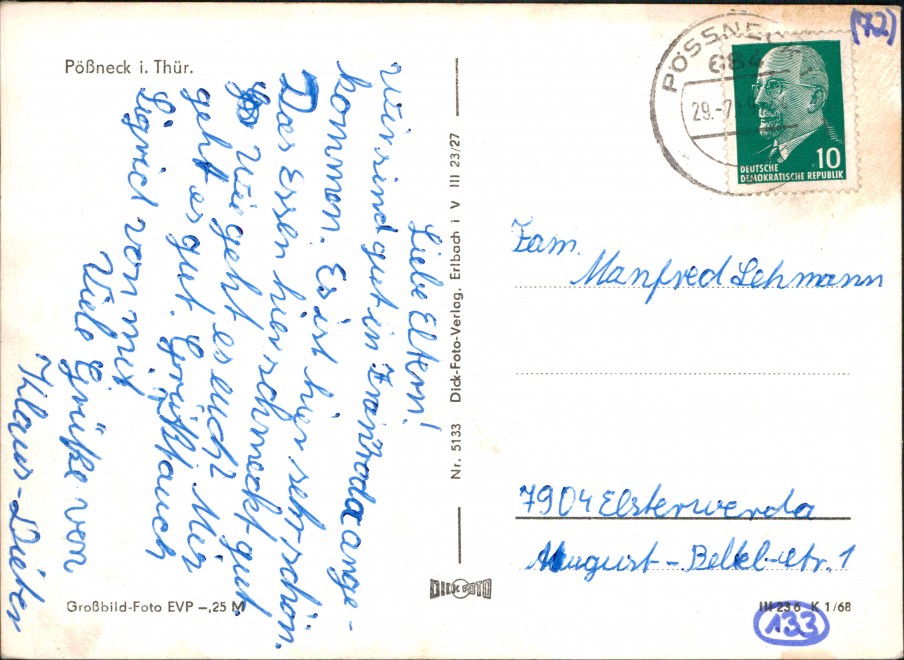 Pößneck i. Thür.
Liebe Eltern!
Wir sind gut in angekommen.
Es ist hier sehr schön.
Das Essen hier schmeckt gut.
Wie geht es euch? Mir
geht es gut. Grüßt auch
Sigrid von mir
Viele Grüße von
Klaus-Dieter
Großbild-Foto EVP –,25 M
Nr. 5133 Dick-Foto-Verlag, Erlbach i V III 23/27
DICK FOTO
(72)
PÖSSNECK
684
29.-7.
10
DEUTSCHE
DEMOKRATISCHE REPUBLIK
Fam.
Manfred Lehmann
7904 Elsterwerda
August-Bebel-Str. 1
III 23 6 K 1/68
133